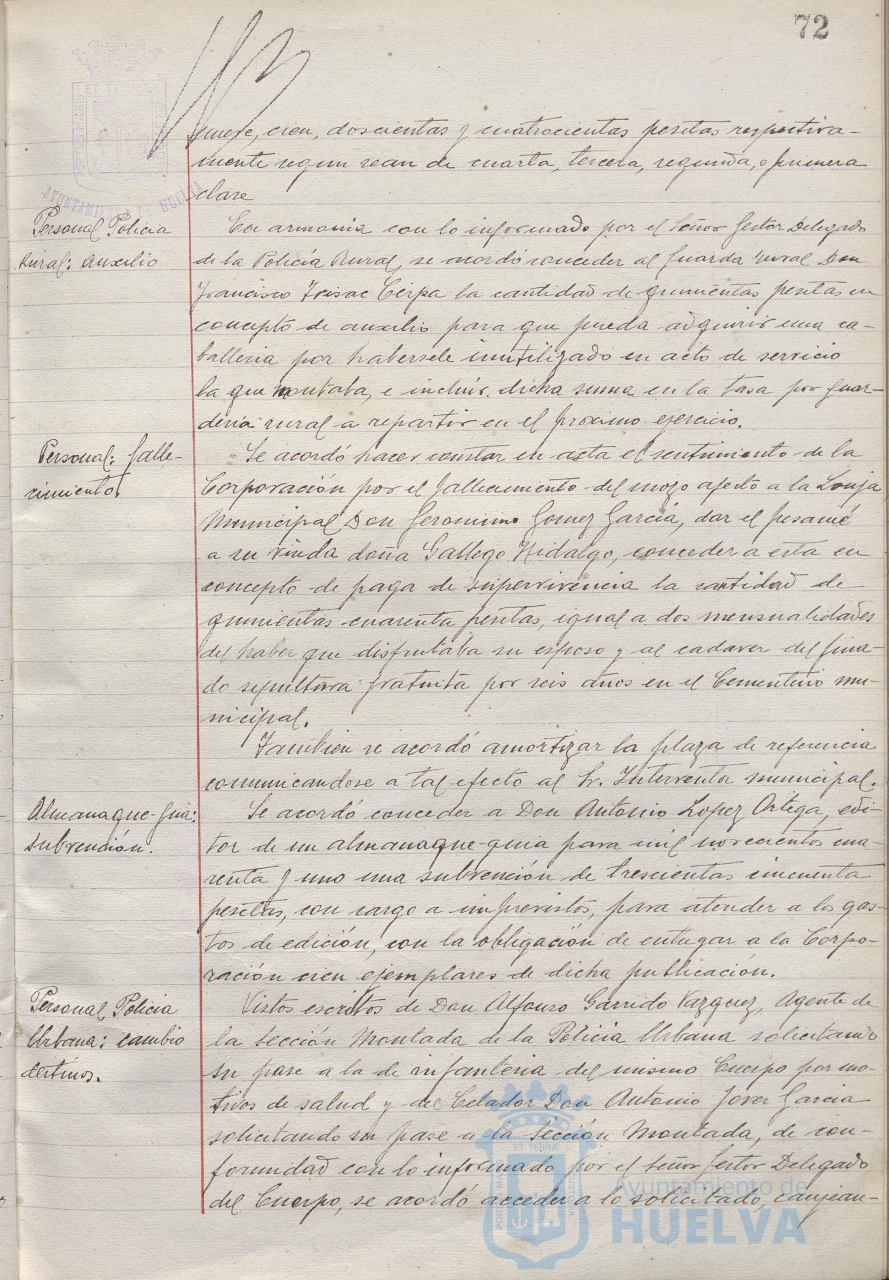 72
nueve, cien, doscientas y cuatrocientas pesetas respectiva-
mente segun sean de cuarta, tercera, segunda, o primera
clase
Personal Policia
Rural: auxilio
En armonia con lo informado por el Señor Gestor Delegado
de la Policía Rural, se acordó conceder al Guarda rural Don
Francisco la cantidad de quinientas pesetas en
concepto de auxilio para que pueda adquirir una ca-
balleria por habersele inutilizado en acto de servicio
la que montaba, e incluir dicha suma en la tasa por guar-
deria rural a repartir en el proximo ejercicio.
Personal: falle-
cimiento.
Se acordó hacer constar en acta el sentimiento de la
Corporación por el fallecimiento del mozo afecto a la Lonja
Municipal Don Geronimo Gomez García, dar el pesamé
a su viuda doña Gallego Hidalgo, conceder a esta en
concepto de paga de supervivencia la cantidad de
quinientas cuarenta pesetas, igual a dos mensualidades
del haber que disfrutaba su esposo y al cadaver del fina-
do sepultura gratuita por seis años en el Cementerio mu-
nicipal.
Tambien se acordó amortizar la plaza de referencia
comunicandose a tal efecto al Sr. Interventor municipal.
Almanaque-guia:
subvención.
Se acordó conceder a Don Antonio Lopez Ortega, edi-
tor de un almanaque-guia para mil novecientos cua-
renta y uno una subvención de trescientas cincuenta
pesetas, con cargo a imprevistos, para atender a los gas-
tos de edición, con la obligación de entregar a la Corpo-
ración cien ejemplares de dicha publicación.
Personal Policia
Urbana: cambio
destinos.
Vistos escritos de Don Alfonso Garrido Vazquez, Agente de
la Sección Montada de la Policia Urbana solicitando
su pase a la de infanteria del mismo Cuerpo por mo-
tivos de salud y del Celador Don Antonio Jover Garcia
solicitando su pase a la Sección Montada, de con-
formidad con lo informado por el Señor Gestor Delegado
del Cuerpo, se acordó acceder a lo solicitado, canjean-
AYUNTAMIENTO DE HUELVA
Ayuntamiento de
HUELVA